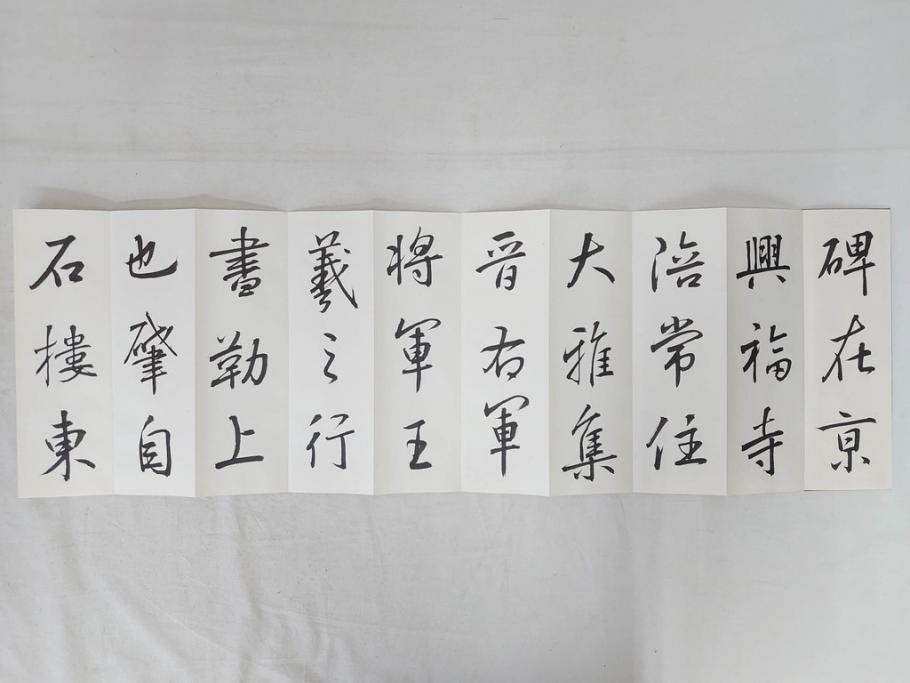 碑在京
興福寺
陪常住
大雅集
晋右軍
將軍王
羲之行
書勒上
也肇自
石樓東